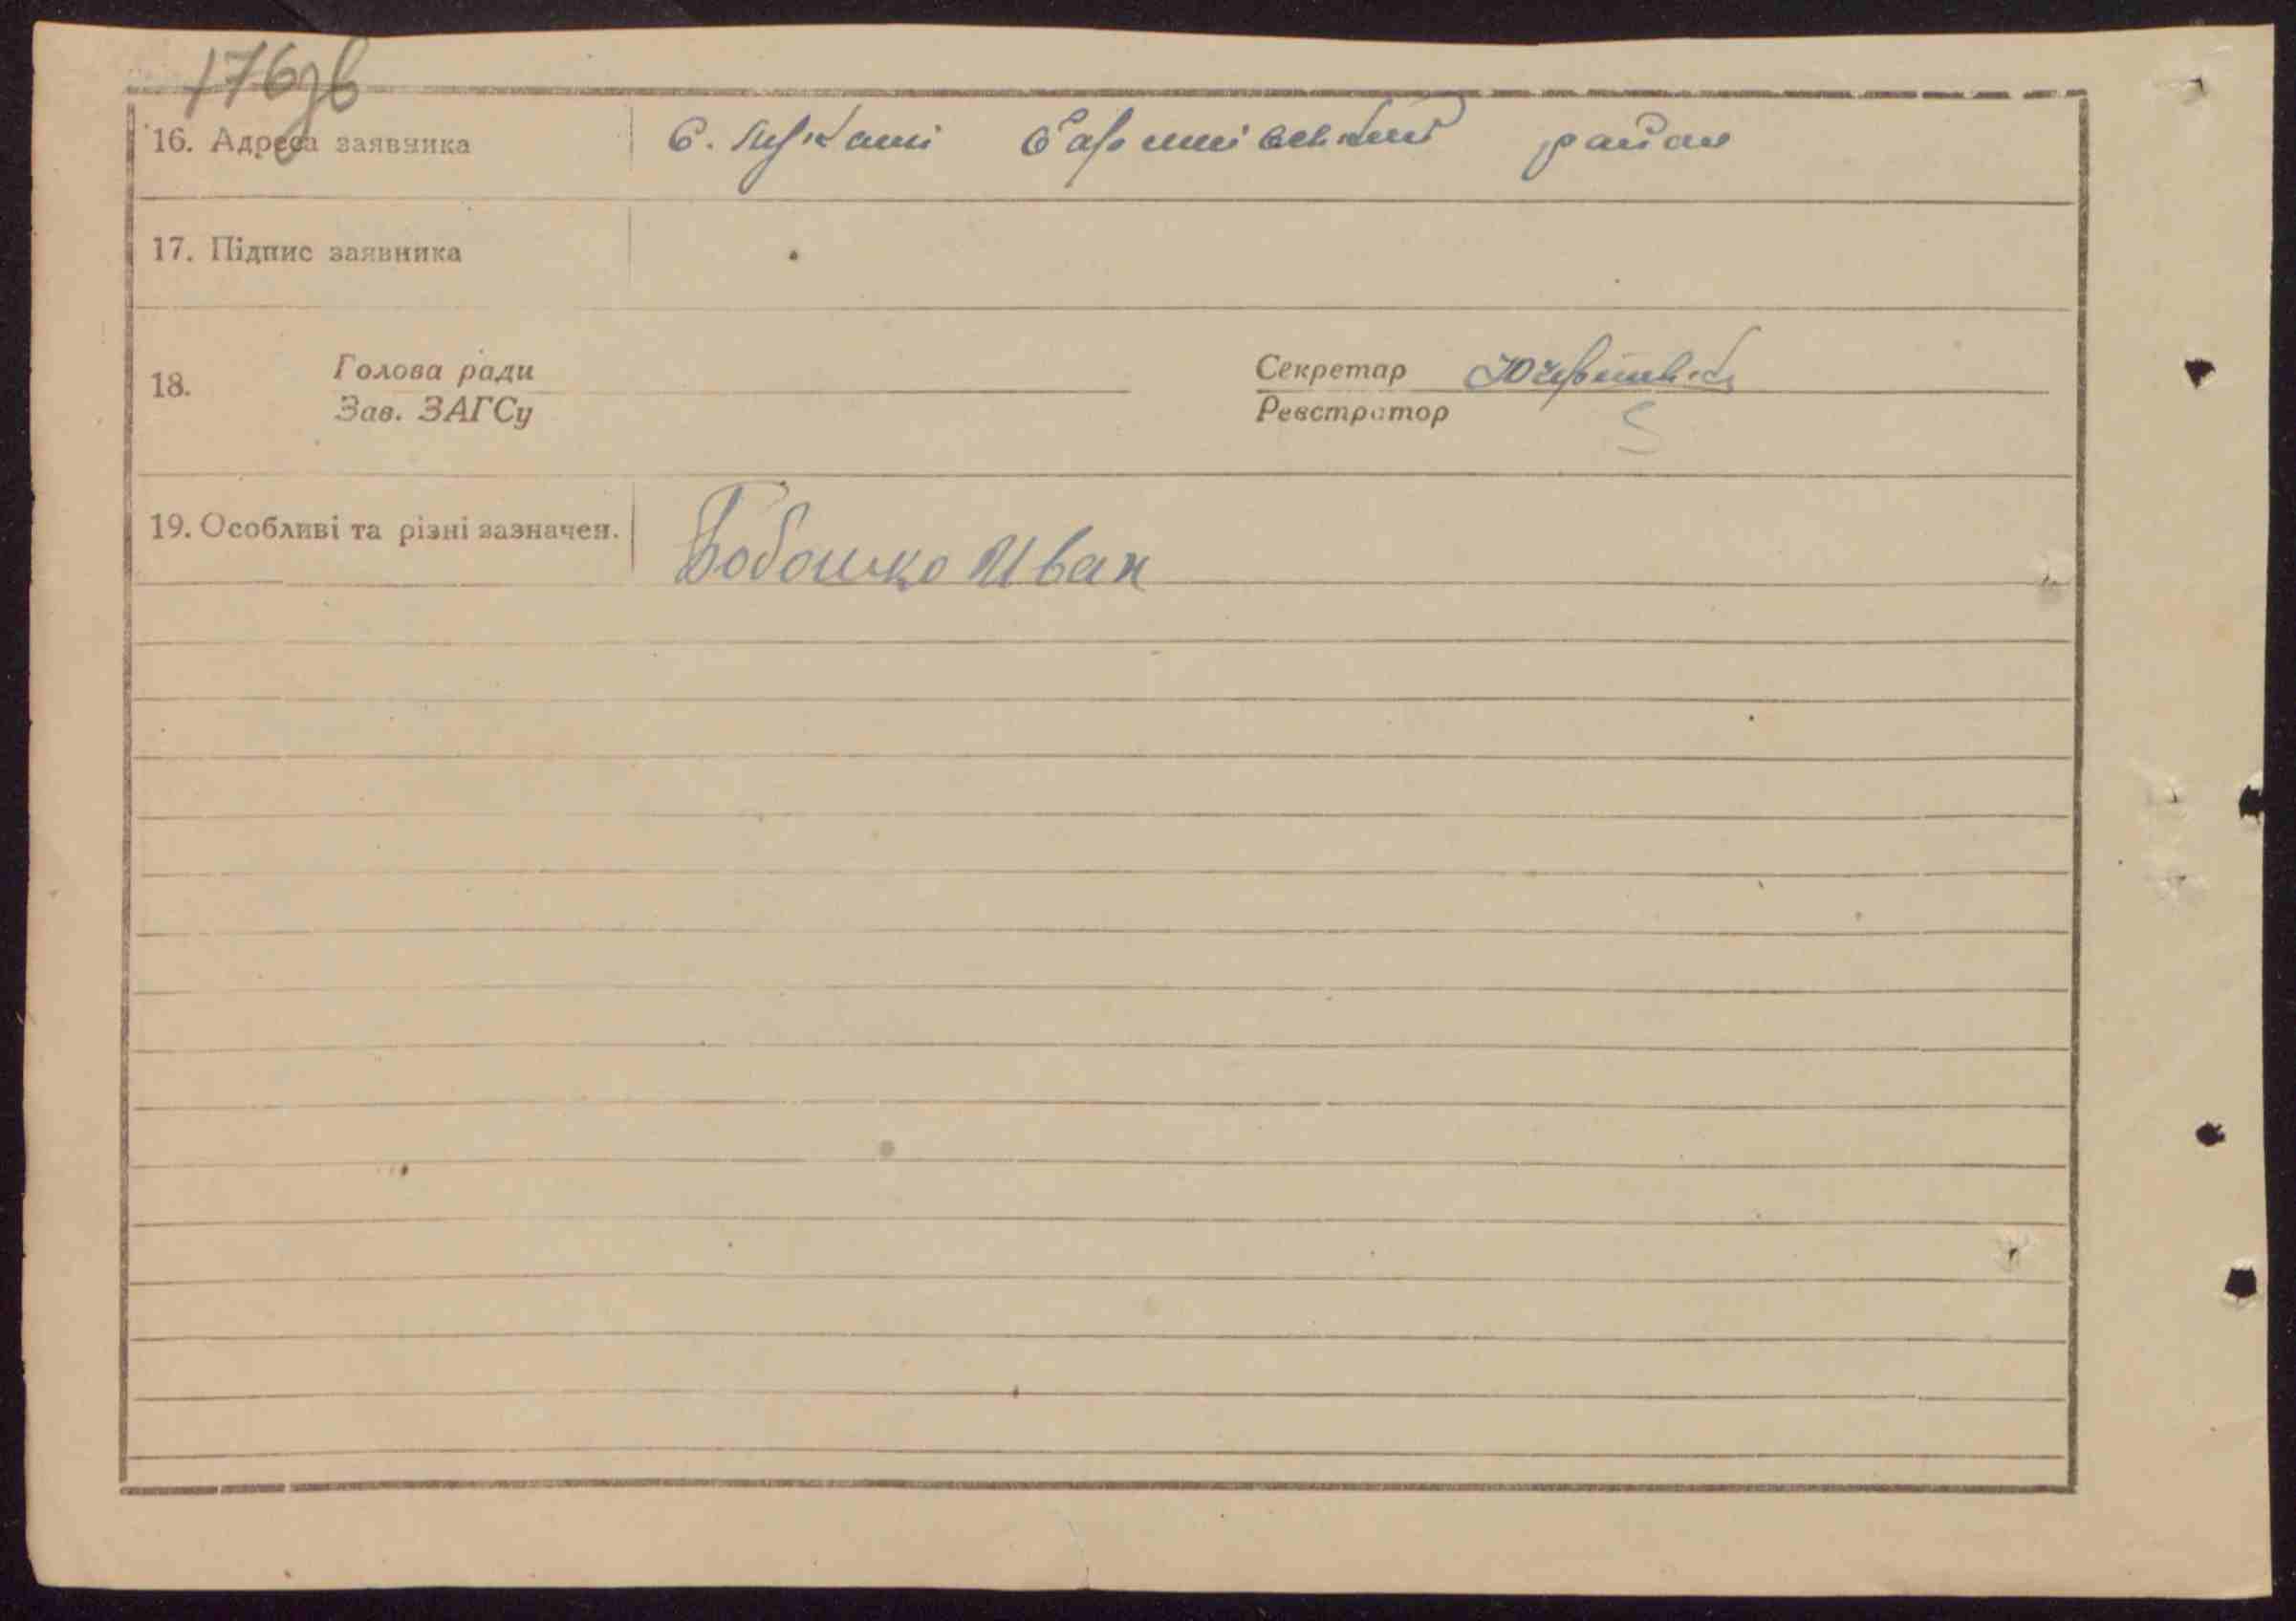 176зв
16. Адреса заявника с. Пуркані Баришівський район
17. Підпис заявника
18. Голова ради Секретар
Зав. ЗАГСу Реєстратор
19. Особливі та різні зазначен. Бобошко Иван